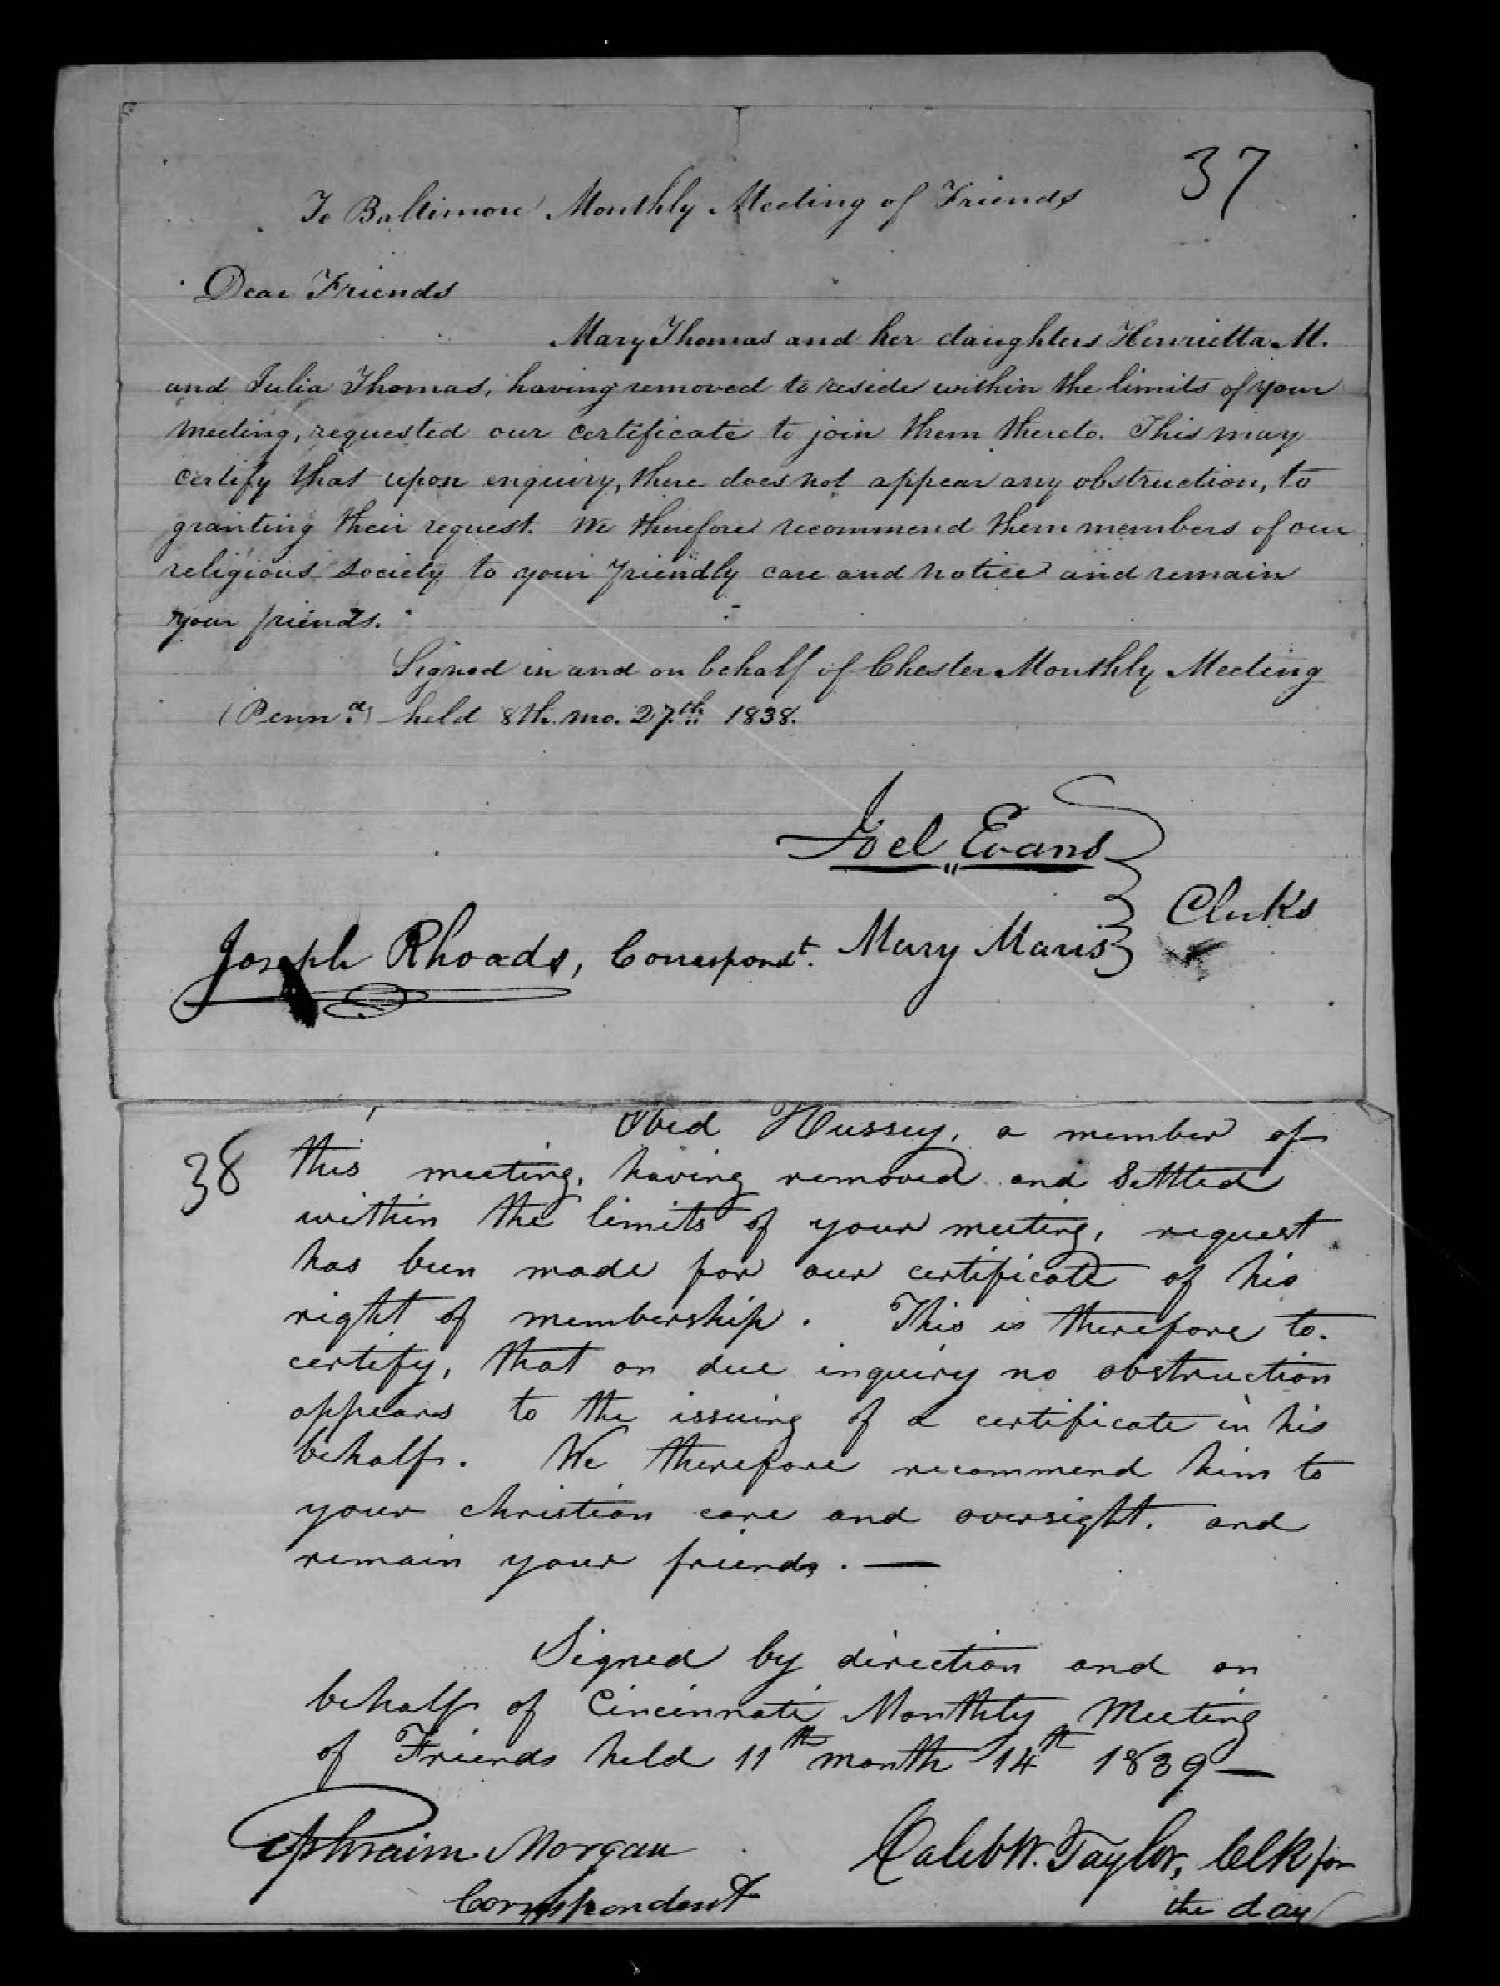 37
To Baltimore Monthly Meeting of Friends
Dear Friends
Mary Thomas and her daughters Henrietta M.
and Julia Thomas, having removed to reside within the limits of your
meeting, requested our certificate to join them thereto. This may
certify that upon enquiry, there does not appear any obstruction, to
granting their request. We therefore recommend them members of our
religious society to your friendly care and notice and remain
your friends.
Signed in and on behalf of Chester Monthly Meeting
(Penna.) held 8th. mo. 27th. 1838.
Joel Evans
Clerks
Joseph Rhoads, Correspondt. Mary Maris
Obed Hussey, a member of
38 this meeting, having removed and Settled
within the limits of your meeting, request
has been made for our certificate of his
right of membership. This is therefore to
certify, that on due inquiry no obstruction
appears to the issuing of a certificate in his
behalf. We therefore recommend him to
your christian care and oversight. and
remain your friends. —
Signed by direction and on
behalf of Cincinnati Monthly Meeting
of Friends held 11th month 14th 1839 —
Ephraim Morgan Caleb W. Taylor, Clk for
Correspondent the day